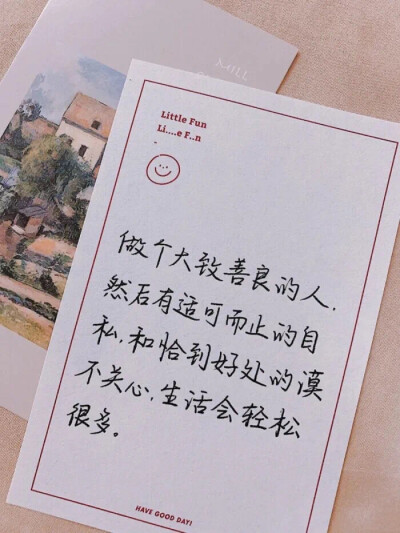 Little Fun
Li....e F..n
做个大致善良的人,
然后有适可而止的自
私,和恰到好处的漠
不关心,生活会轻松
很多。
HAVE GOOD DAY!